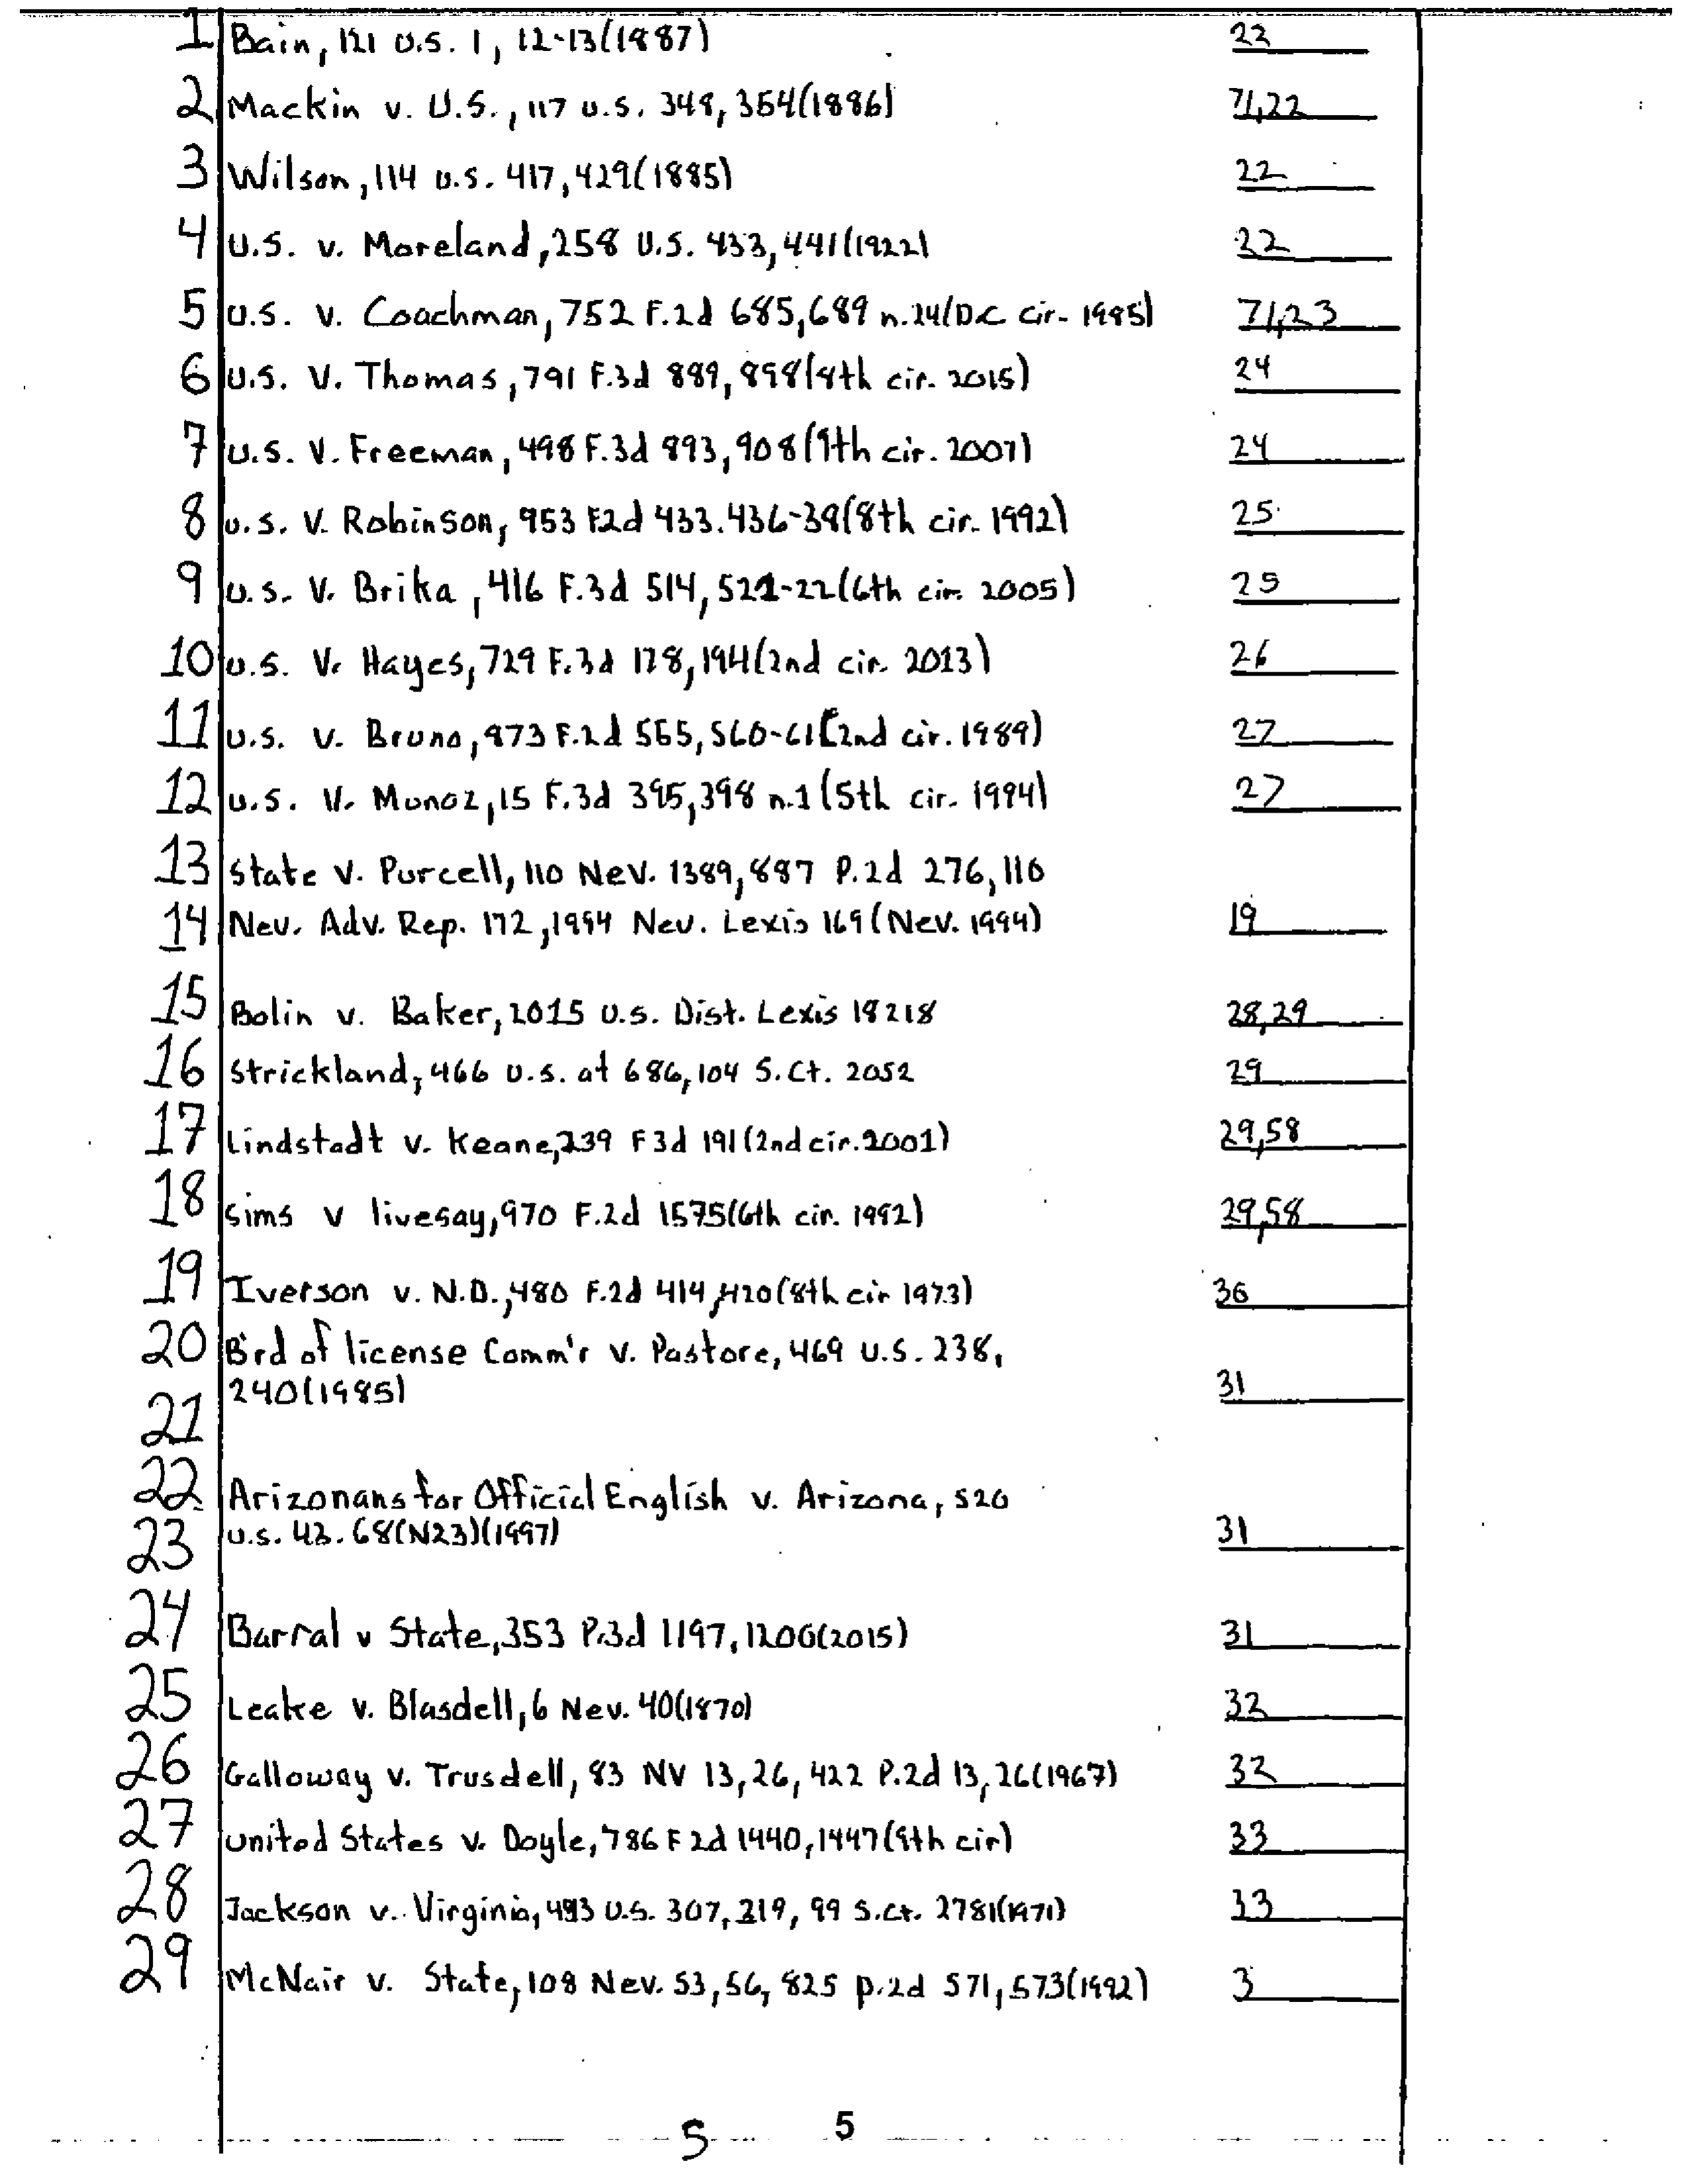 1 Bain, 121 U.S. 1, 12-13(1887) 22
2 Mackin v. U.S., 117 u.s. 348, 354(1886) 71,22
3 Wilson, 114 U.S. 417, 429(1885) 22
4 U.S. v. Moreland, 258 U.S. 433, 441(1922) 22
5 U.S. v. Coachman, 752 F.2d 685, 689 n.24(D.C cir. 1985) 71,23
6 U.S. V. Thomas, 791 F.3d 889, 898(8th cir. 2015) 24
7 U.S. V. Freeman, 498 F.3d 893, 908(9th cir. 2007) 24
8 U.S. V. Robinson, 953 F2d 433.436-39(8th cir. 1992) 25
9 U.S. V. Brika, 416 F.3d 514, 521-22(6th cir. 2005) 25
10 U.S. V. Hayes, 729 F.3d 178, 194(2nd cir. 2013) 26
11 U.S. v. Bruno, 873 F.2d 555, 560-61(2nd cir. 1989) 27
12 U.S. V. Munoz, 15 F.3d 395, 398 n.1(5th cir. 1994) 27
13 State V. Purcell, 110 Nev. 1389, 887 P.2d 276, 110
14 Nev. Adv. Rep. 172, 1994 Nev. Lexis 169(Nev. 1994) 19
15 Bolin v. Baker, 2015 U.S. Dist. Lexis 18218 28,29
16 Strickland, 466 U.S. at 686, 104 S.Ct. 2052 29
17 Lindstadt v. Keane, 239 F3d 191(2nd cir. 2001) 29,58
18 Sims v livesay, 970 F.2d 1575(6th cir. 1992) 29,58
19 Iverson v. N.D., 480 F.2d 414, 420(8th cir 1973) 30
20 Brd of license Comm'r v. Pastore, 469 U.S. 238,
21 240(1985) 31
22 Arizonans for Official English v. Arizona, 520
23 U.S. 43.68(N23)(1997) 31
24 Barral v State, 353 P.3d 1197, 1200(2015) 31
25 Leake v. Blasdell, 6 Nev. 40(1870) 32
26 Galloway v. Trusdell, 83 NV 13, 26, 422 P.2d 13, 26(1967) 32
27 United States v. Doyle, 786 F2d 1440, 1447(9th cir) 33
28 Jackson v. Virginia, 443 U.S. 307, 319, 99 S.Ct. 2781(1971) 33
29 McNair v. State, 108 Nev. 53, 56, 825 p.2d 571, 573(1992) 3
5 5